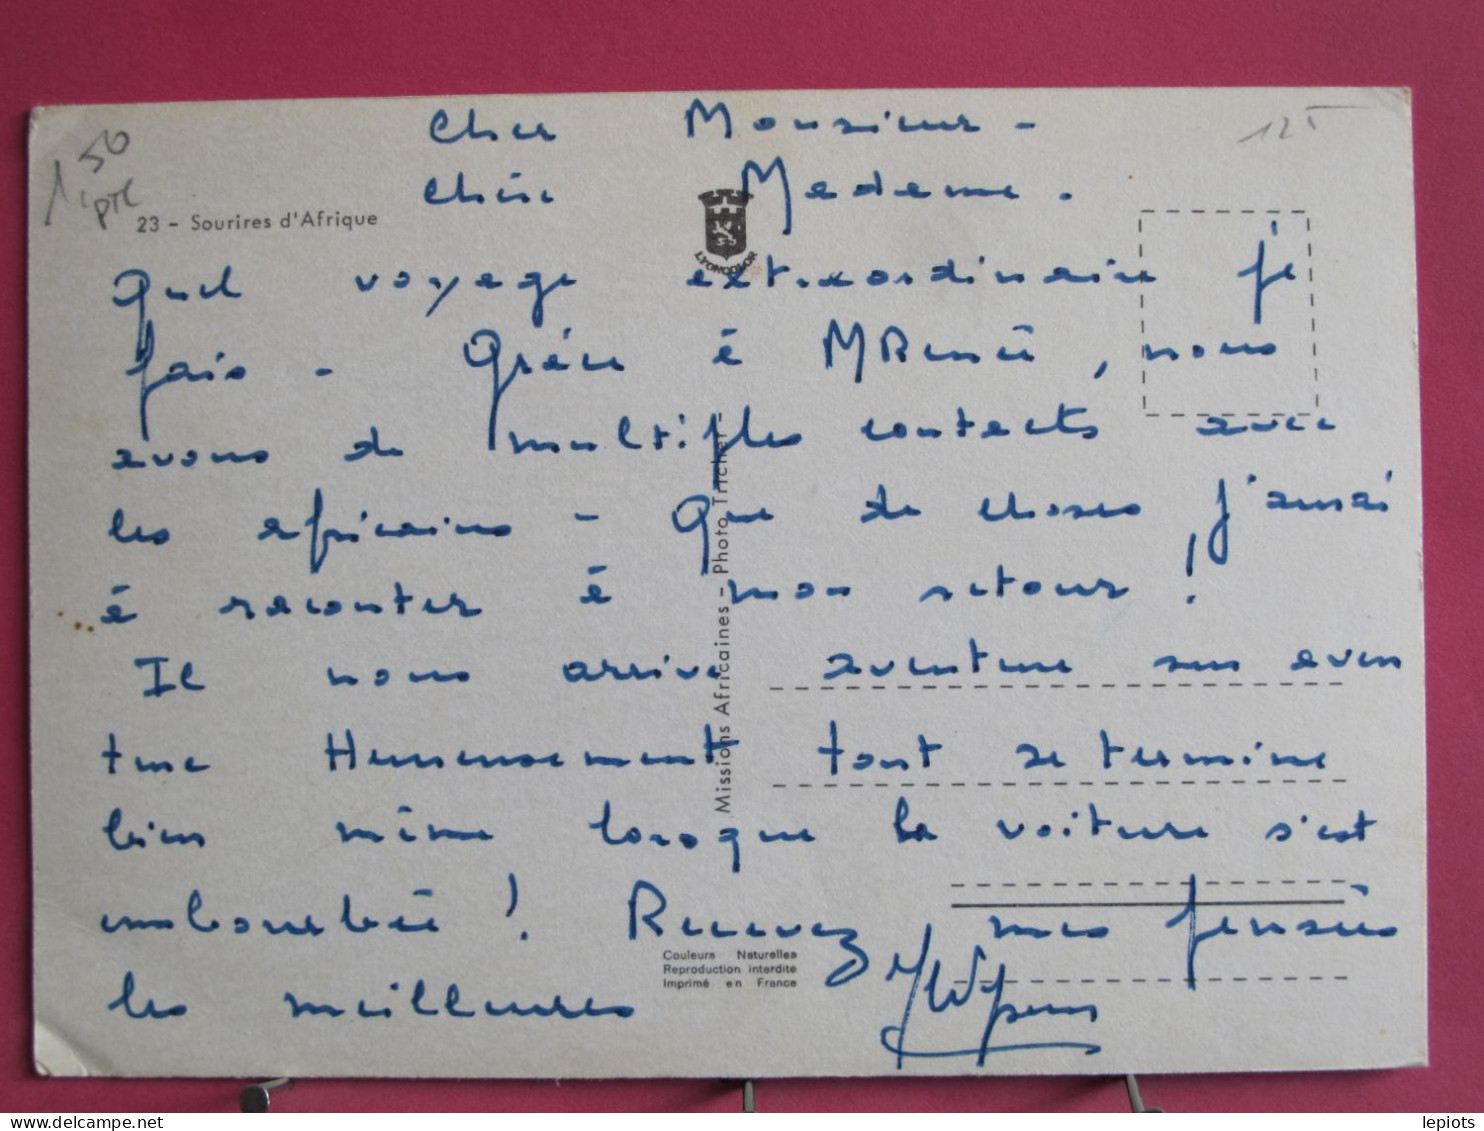 Cher Monsieur -
Chère Madame.
150
PTE
125
23 - Sourires d'Afrique
LYONCOLOR
Quel voyage extraordinaire je
fais - Grâce à M René, nous
avons de multiples contacts avec
les africains - Que de choses j'aurai
à raconter à mon retour !
Il nous arrive aventure sur aven
ture Heureusement tout se termine
bien même lorsque la voiture s'est
embourbée ! Recevez mes pensées
les meilleures
Missions Africaines - Photo Trichet -
Couleurs Naturelles
Reproduction interdite
Imprimé en France
lepiots